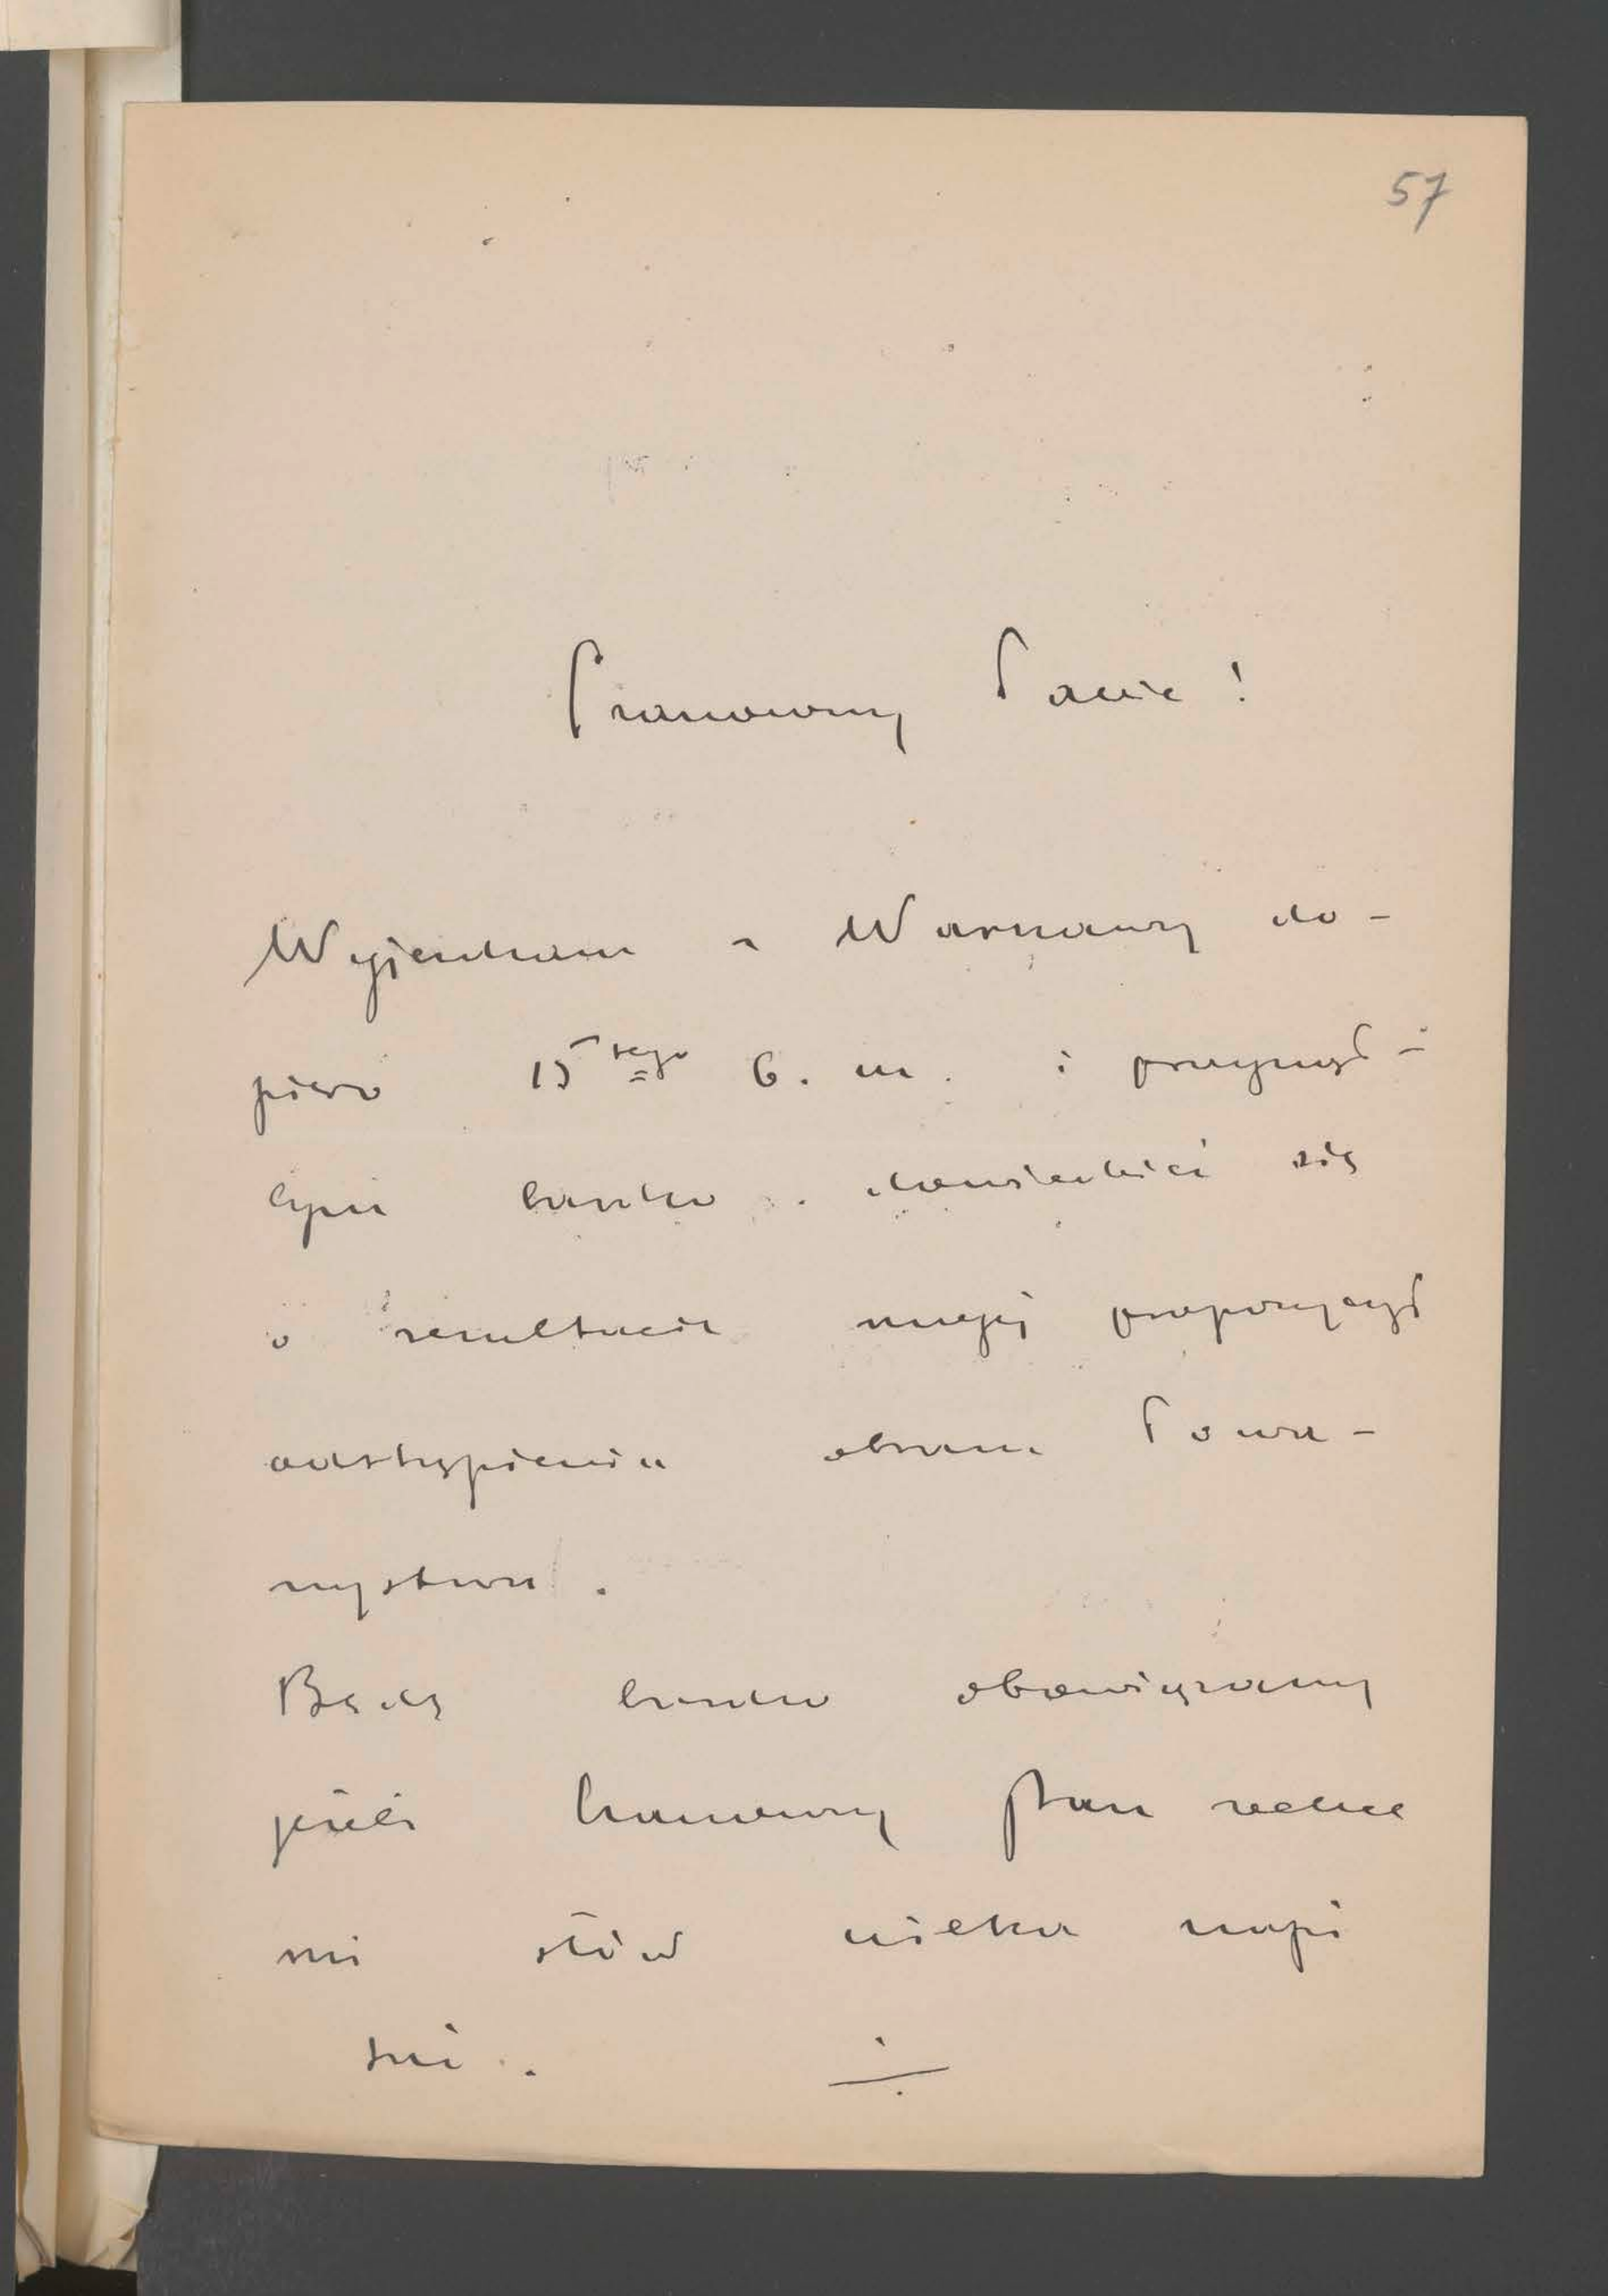 57
Szanowny Panie!
Wyjeżdżam z Warszawy do-
piero 15tego b. m. i pragnął-
bym bardzo dowiedzieć się
o rezultacie mojej propozycyi
odstąpienia obrazu Towa-
rzystwu.
Będę bardzo obowiązany
jeżeli Szanowny Pan zechce
mi słów kilka napi
sać.